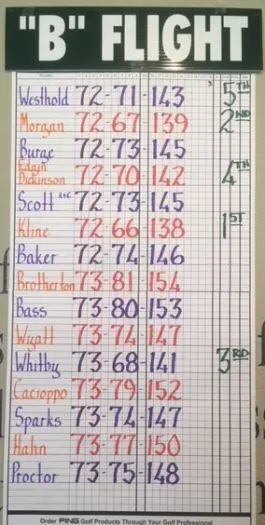 "B" FLIGHT
Westhold 72-71-143 5TH
Morgan 72 67 139 2ND
Burge 72-73-145
Edwin
Dickinson 72-70-142 4TH
Scott 72-73-145
Kline 72 66 138 1ST
Baker 72-74-146
Brotherton 73-81-154
Bass 73-80-153
Wyatt 73-74-147
Whitby 73-68-141 3RD
Cacioppo 73-79-152
Sparks 73-74-147
Hahn 73-77-150
Proctor 73-75-148
Order PING Golf Products Through Your Golf Professional